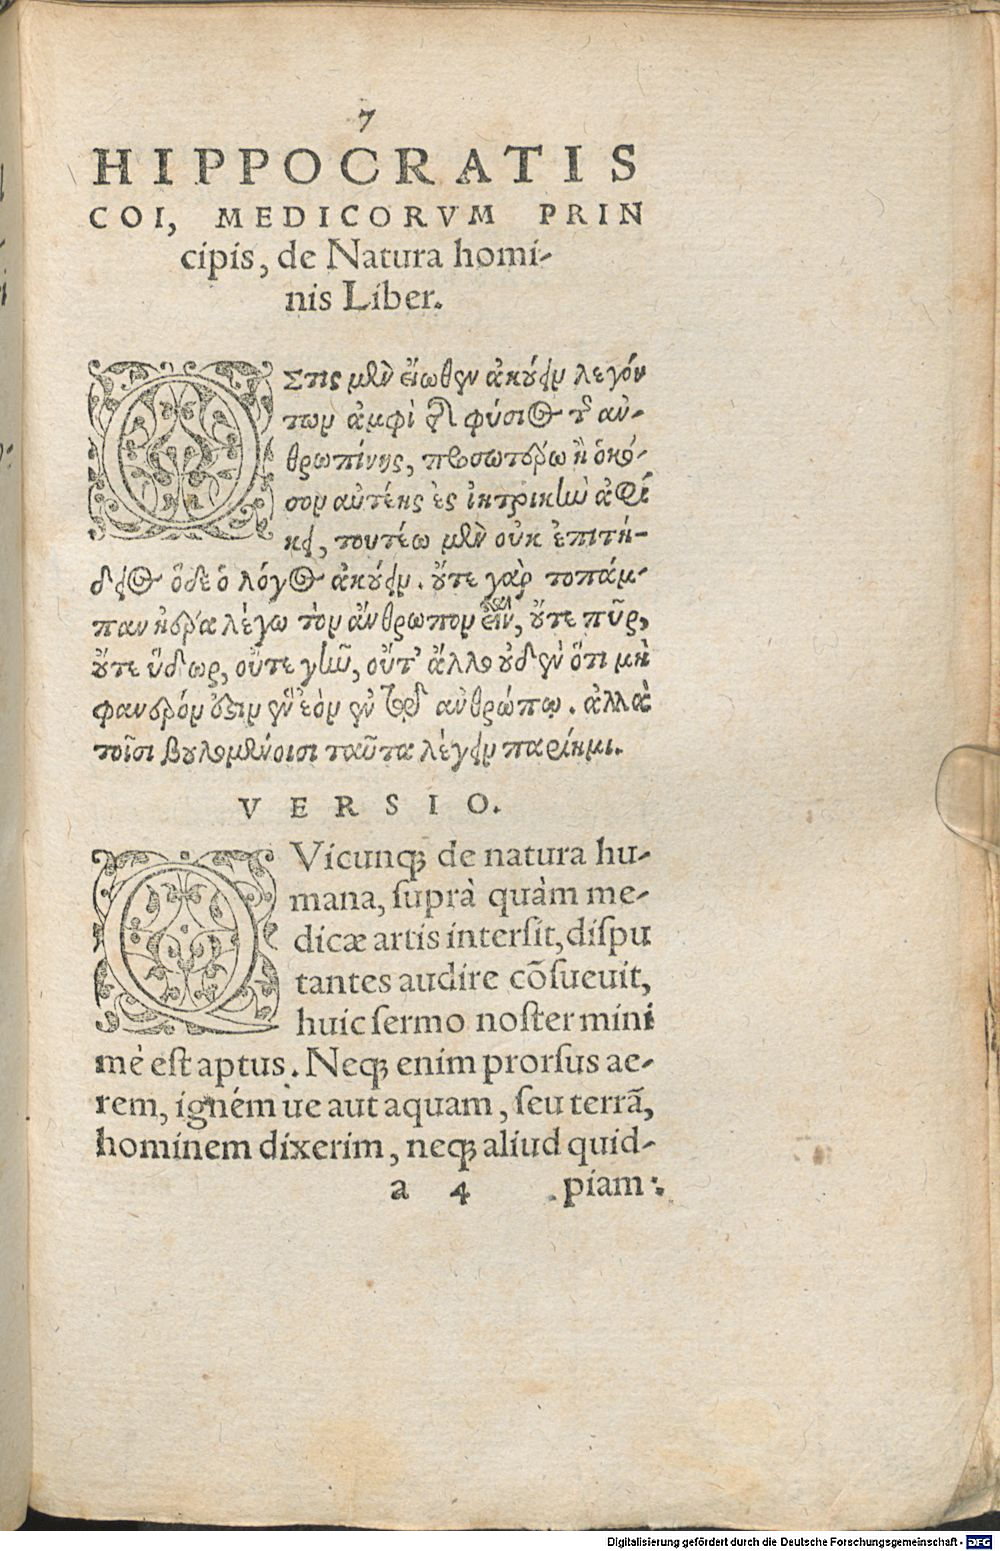 7
HIPPOCRATIS
COI, MEDICORVM PRIN
cipis, de Natura homi-
nis Liber.
ΟΣτις μὲν εἴωθεν ἀκούειν λεγόν
των ἀμφὶ τῆς φύσιος τῆς ἀν-
θρωπίνης, προσωτέρω ἢ ὁκό-
σον αὐτέης ἐς ἰητρικὴν ἀφί
κει, τουτέω μὲν οὐκ ἐπιτή-
δειος ὅδε ὁ λόγος ἀκούειν. οὔτε γὰρ τοπάμ-
παν ἠέρα λέγω τὸν ἄνθρωπον εἶναι, οὔτε πῦρ,
οὔτε ὕδωρ, οὔτε γῆν, οὔτ' ἄλλο οὐδὲν ὅτι μὴ
φανερόν ἐστιν ἓν ἐὸν ἐν τῷ ἀνθρώπῳ. ἀλλὰ
τοῖσι βουλομένοισι ταῦτα λέγειν παρίημι.
VERSIO.
QVicunq; de natura hu-
mana, suprà quàm me-
dicæ artis intersit, dispu
tantes audire cõsueuit,
huic sermo noster mini
mè est aptus. Neq; enim prorsus ae-
rem, igném ue aut aquam, seu terrã,
hominem dixerim, neq; aliud quid-
a 4 piam
Digitalisierung gefördert durch die Deutsche Forschungsgemeinschaft - DFG